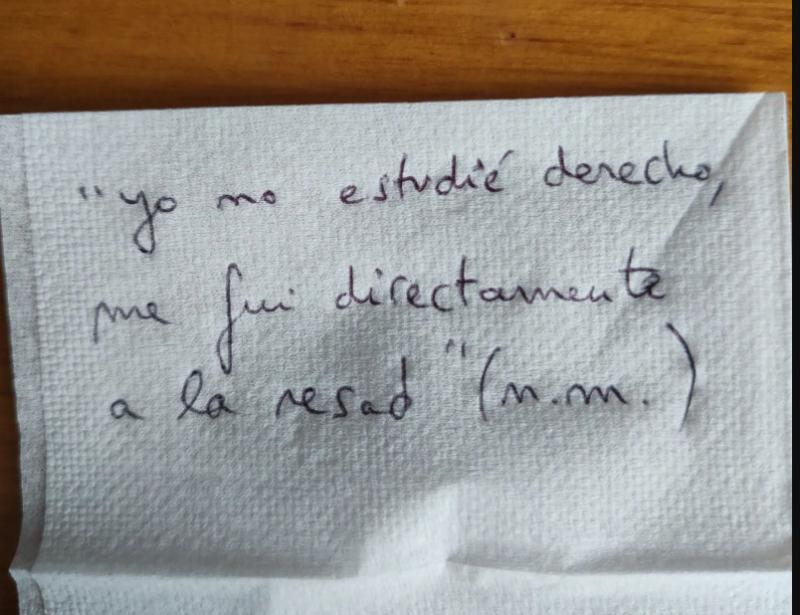 "yo no estudié derecho,
me fui directamente
a la resad" (n.m.)